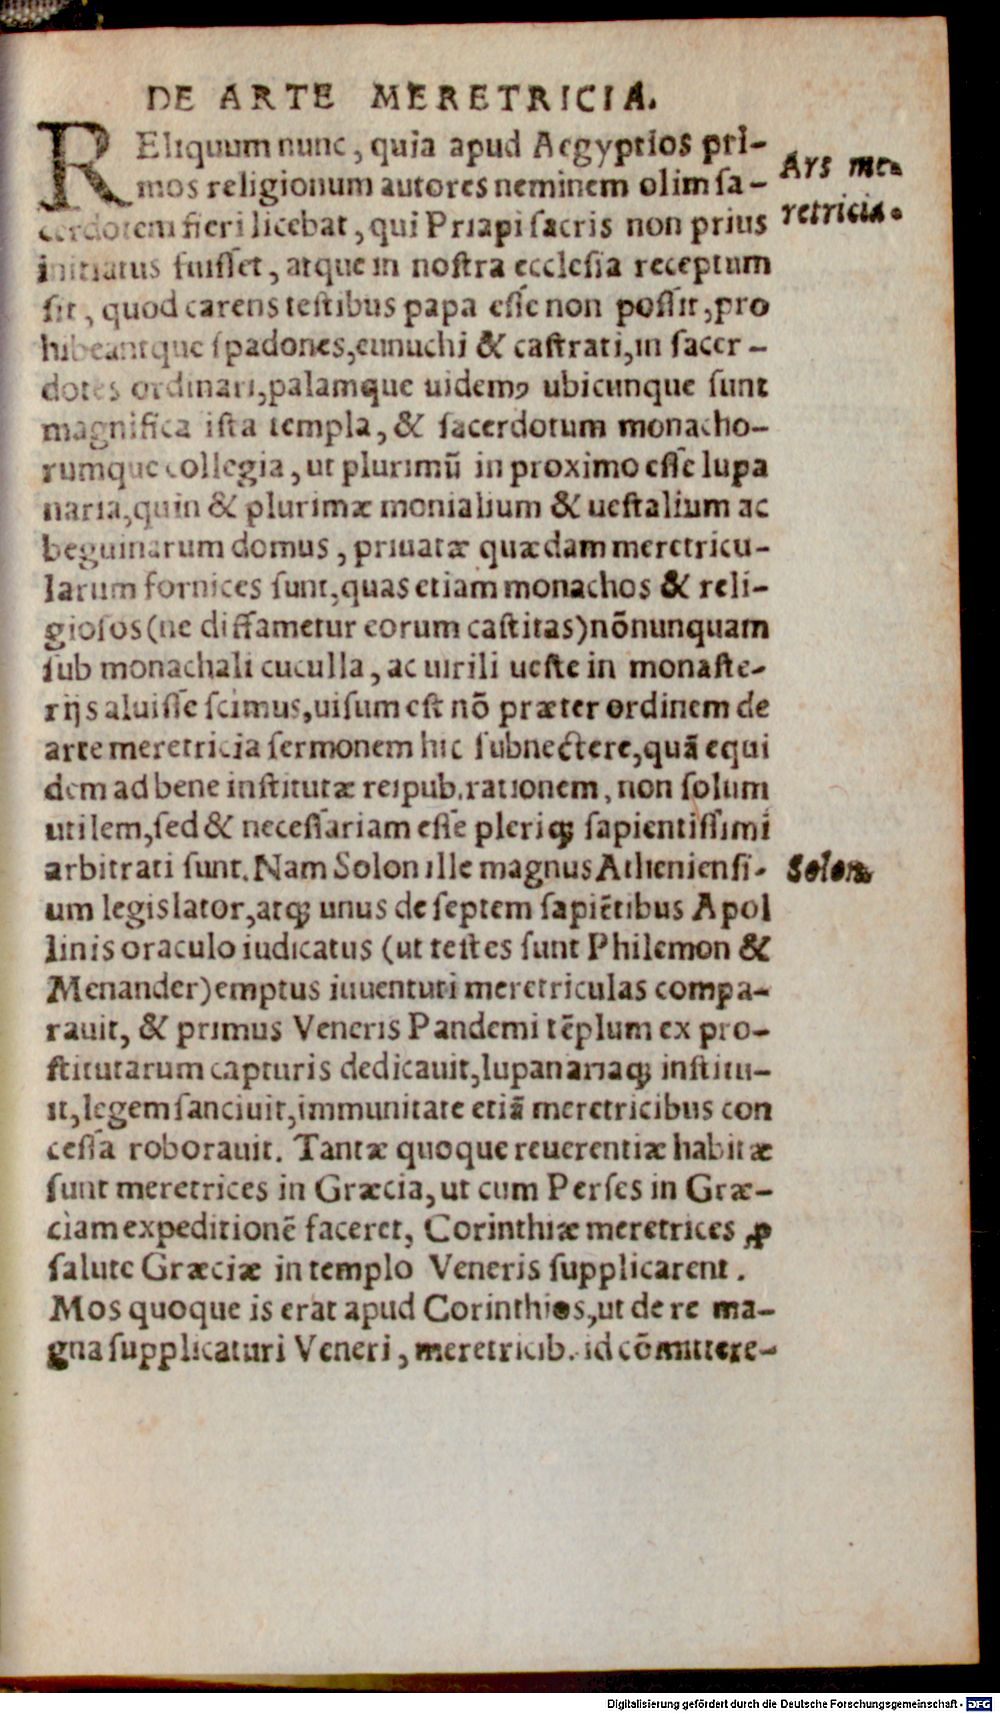 DE ARTE MERETRICIA.
RElıquum nunc, quia apud Aegyptios pri-
mos religionum autores neminem olim ſa-
cerdotem fieri licebat, qui Priapi ſacris non prius
initiatus fuiſſet, atque in noſtra eccleſia receptum
ſit, quod carens teſtibus papa eſſe non poſſit, pro
hibeantque ſpadones, eunuchi & caſtrati, in ſacer-
dotes ordinari, palamque uidemꝰ ubicunque ſunt
magnifica iſta templa, & ſacerdotum monacho-
rumque collegia, ut plurimū in proximo eſſe lupa
naria, quin & plurimæ monialium & ueſtalium ac
beguinarum domus, priuatæ quædam meretricu-
larum fornices ſunt, quas etiam monachos & reli-
gioſos (ne diffametur eorum caſtitas) nōnunquam
ſub monachali cuculla, ac uirili ueſte in monaſte-
rijs aluiſſe ſcimus, uiſum eſt nō præter ordinem de
arte meretricia ſermonem hic ſubnectere, quā equi
dem ad bene inſtitutæ reipub. rationem, non ſolum
utilem, ſed & neceſſariam eſſe pleriqꝫ ſapientiſſimi
arbitrati ſunt. Nam Solon ille magnus Athenienſi-
um legislator, atqꝫ unus de ſeptem ſapiētibus Apol
linis oraculo iudicatus (ut teſtes ſunt Philemon &
Menander) emptus iuuentuti meretriculas compa-
rauit, & primus Veneris Pandemi tēplum ex pro-
ſtitutarum capturis dedicauit, lupanariaqꝫ inſtitu-
it, legem ſanciuit, immunitate etiā meretricibus con
ceſſa roborauit. Tantæ quoque reuerentiæ habitæ
ſunt meretrices in Græcia, ut cum Perſes in Græ-
ciam expeditionē faceret, Corinthiæ meretrices ꝓ
ſalute Græciæ in templo Veneris ſupplicarent.
Mos quoque is erat apud Corinthios, ut de re ma-
gna ſupplicaturi Veneri, meretricib. id cōmittere-
Ars me-
retricia.
Solon
Digitalisierung gefördert durch die Deutsche Forschungsgemeinschaft - DFG